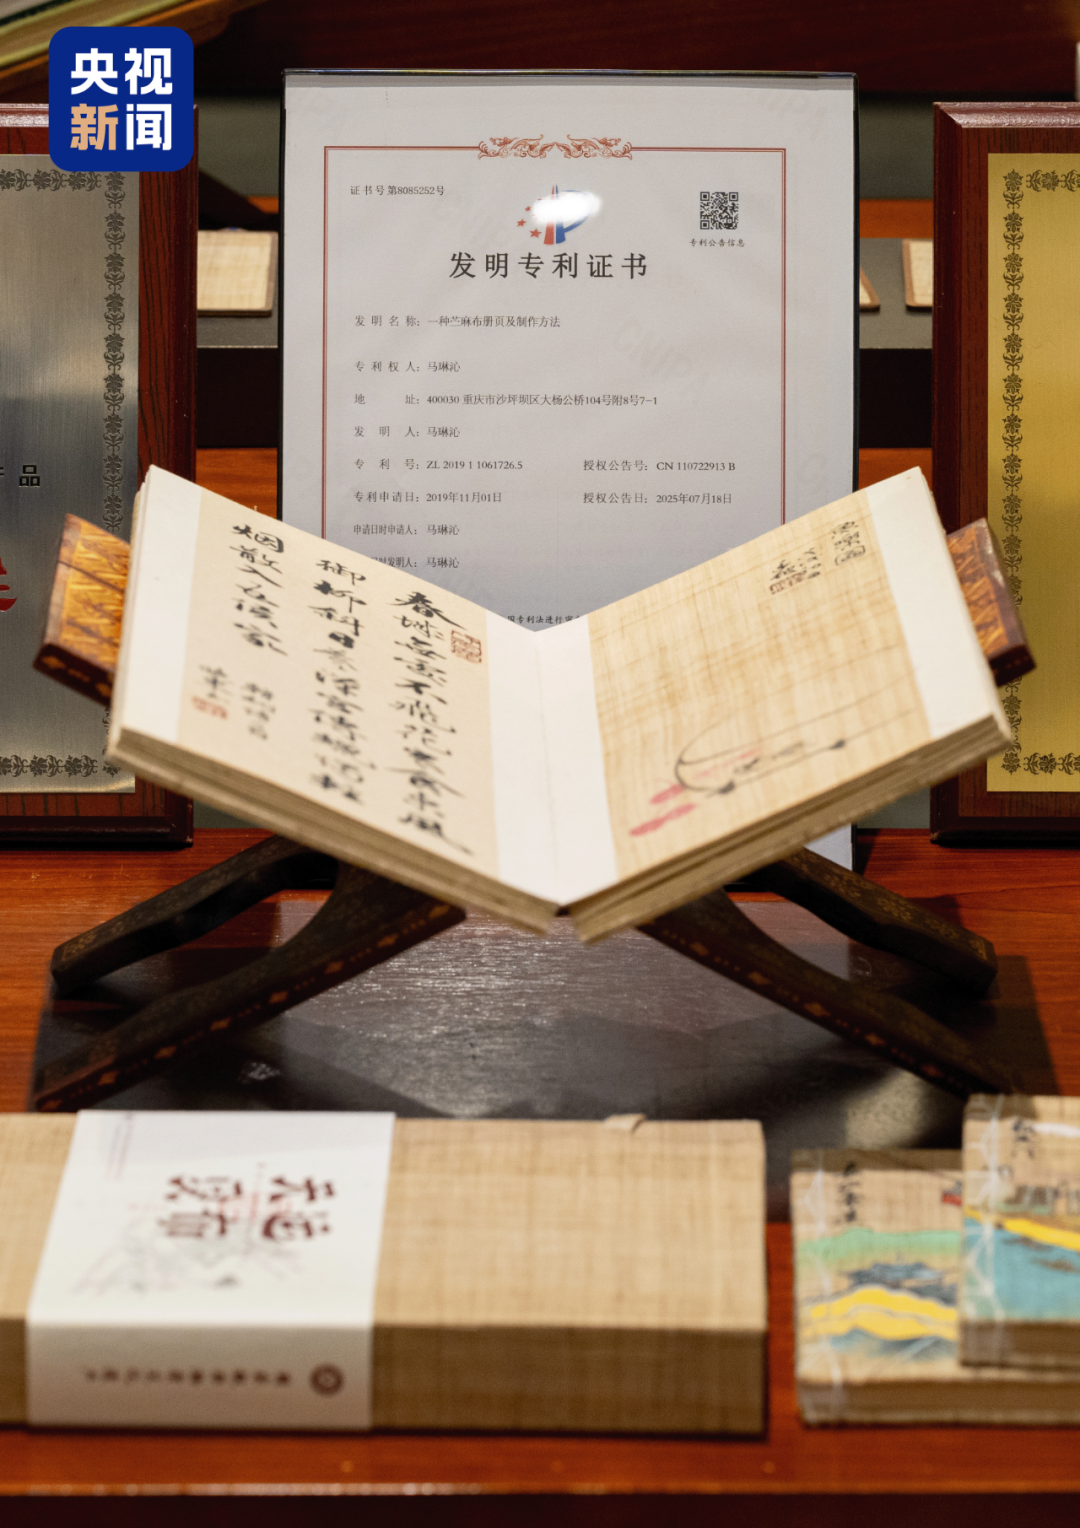 央视
新闻
证书号第8085252号
专利公告信息
发明专利证书
发明名称：一种苎麻布册页及制作方法
专利权人：马琳沁
地址：400030 重庆市沙坪坝区大杨公桥104号附8号7-1
发明人：马琳沁
专利号：ZL 2019 1 1061726.5 授权公告号：CN 110722913 B
专利申请日：2019年11月01日 授权公告日：2025年07月18日
申请日时申请人：马琳沁
时发明人：马琳沁
专利法进行审
品
春城无处不飞花寒食东风
御柳斜日暮汉宫传蜡烛轻
烟散入五侯家